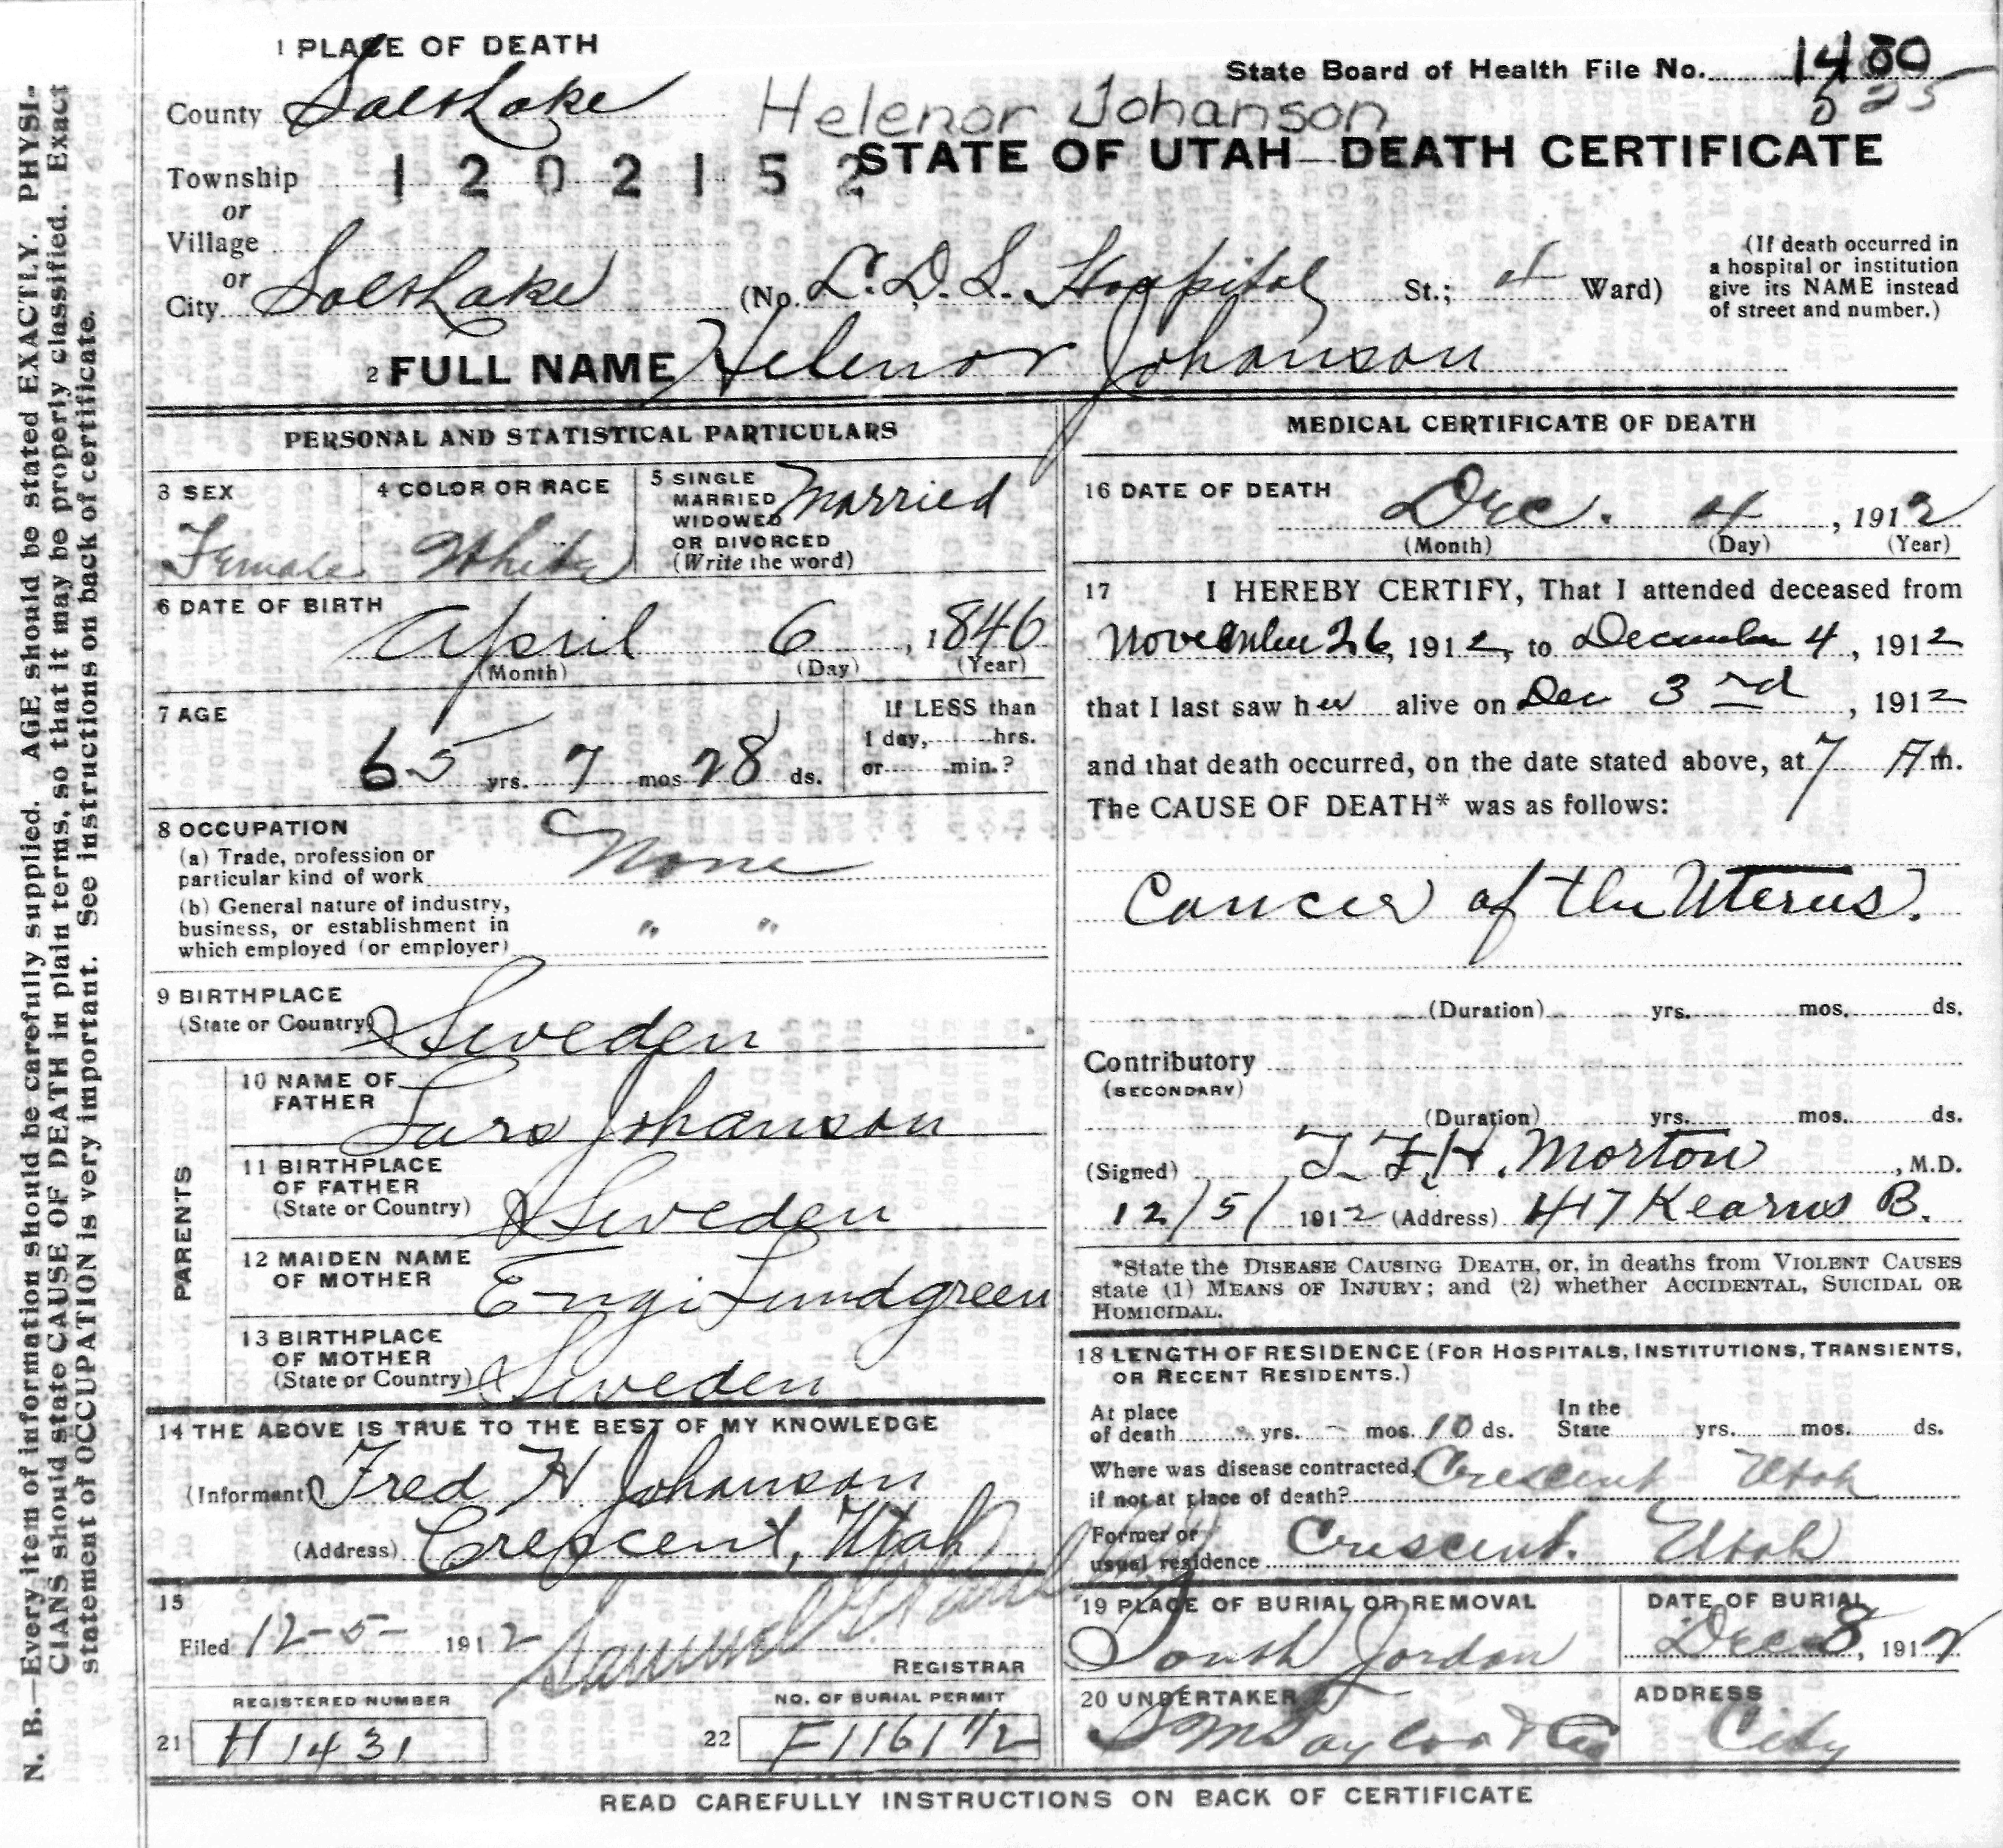 1 PLACE OF DEATH
State Board of Health File No. 1480
525
County Salt Lake
Helenor Johanson
STATE OF UTAH—DEATH CERTIFICATE
Township 1202152
or
Village
or
City Salt Lake (No. L.D.S. Hospital St.; 4 Ward)
(If death occurred in
a hospital or institution
give its NAME instead
of street and number.)
2 FULL NAME Helenor Johanson
PERSONAL AND STATISTICAL PARTICULARS
3 SEX
Female
4 COLOR OR RACE
White
5 SINGLE
MARRIED
WIDOWED
OR DIVORCED
(Write the word)
Married
6 DATE OF BIRTH
April 6, 1846
(Month) (Day) (Year)
7 AGE
65 yrs. 7 mos 28 ds.
If LESS than
1 day, hrs.
or min.?
8 OCCUPATION
(a) Trade, profession or
particular kind of work None
(b) General nature of industry,
business, or establishment in
which employed (or employer) " "
9 BIRTHPLACE
(State or Country) Sweden
PARENTS
10 NAME OF
FATHER
Lars Johanson
11 BIRTHPLACE
OF FATHER
(State or Country) Sweden
12 MAIDEN NAME
OF MOTHER
Engi Lundgreen
13 BIRTHPLACE
OF MOTHER
(State or Country) Sweden
14 THE ABOVE IS TRUE TO THE BEST OF MY KNOWLEDGE
(Informant) Fred H Johanson
(Address) Crescent, Utah
15
Filed 12-5- 1912 Samuel
REGISTRAR
REGISTERED NUMBER
21 H 1431
NO. OF BURIAL PERMIT
22 F1161 1/2
MEDICAL CERTIFICATE OF DEATH
16 DATE OF DEATH
Dec. 4, 1912
(Month) (Day) (Year)
17 I HEREBY CERTIFY, That I attended deceased from
November 26, 1912, to December 4, 1912
that I last saw her alive on Dec 3rd, 1912
and that death occurred, on the date stated above, at 7 A m.
The CAUSE OF DEATH* was as follows:
Cancer of the Uterus.
(Duration) yrs. mos. ds.
Contributory
(SECONDARY)
(Duration) yrs. mos. ds.
(Signed) T. F. H. Morton, M.D.
12/5/ 1912 (Address) 417 Kearns B.
*State the DISEASE CAUSING DEATH, or, in deaths from VIOLENT CAUSES
state (1) MEANS OF INJURY; and (2) whether ACCIDENTAL, SUICIDAL OR
HOMICIDAL.
18 LENGTH OF RESIDENCE (FOR HOSPITALS, INSTITUTIONS, TRANSIENTS,
OR RECENT RESIDENTS.)
At place
of death - yrs. - mos. 10 ds.
In the
State yrs. mos. ds.
Where was disease contracted, Crescent Utah
if not at place of death?
Former or
usual residence Crescent. Utah
19 PLACE OF BURIAL OR REMOVAL
South Jordan
DATE OF BURIAL
Dec 8, 1912
20 UNDERTAKER
S M Taylor & Co
ADDRESS
City
READ CAREFULLY INSTRUCTIONS ON BACK OF CERTIFICATE
N. B.—Every item of information should be carefully supplied. AGE should be stated EXACTLY. PHYSI-
CIANS should state CAUSE OF DEATH in plain terms, so that it may be properly classified. Exact
statement of OCCUPATION is very important. See instructions on back of certificate.